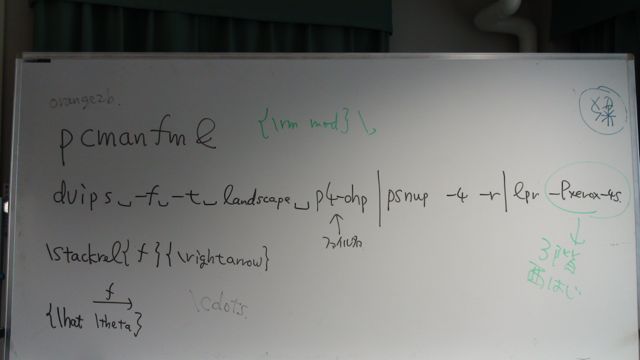 orange2b.
pcmanfm &
{\rm mod}\,
dvips␣-f␣-t␣landscape␣p4-ohp | psnup -4 -r | lpr -Pxerox-4s
ファイル名
3階
西はじ
\stackrel{f}{\rightarrow}
f
{\hat \theta}
\cdots